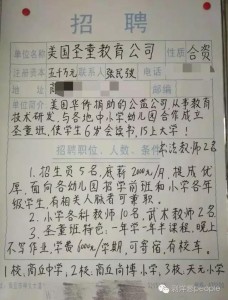 招聘
单位名称 美国圣童教育公司 性质 合资
注册资本 五十万元 联系人 张民锁 电话
地址
单位简介 美国华侨捐助的公益公司,从事教育
技术研发,与各地中小学幼儿园合作成立
圣童班,使学生6岁会读书,15上大学!
招聘职位、人数、条件
武术教师2名
1.招生员5名,底薪2000元/月,提成优
厚,面向各幼儿园招学前班和小学各年
级学生,有相关人脉者可兼职.
2.小学各科教师10名,武术教师2名
3.圣童班特色:一年学一年半课程,晚上
不写作业,学费6000元/学期,可寄宿,有校车.
1校,商丘中学,2校,商丘尚博小学,3校,天元小学
这样爱people